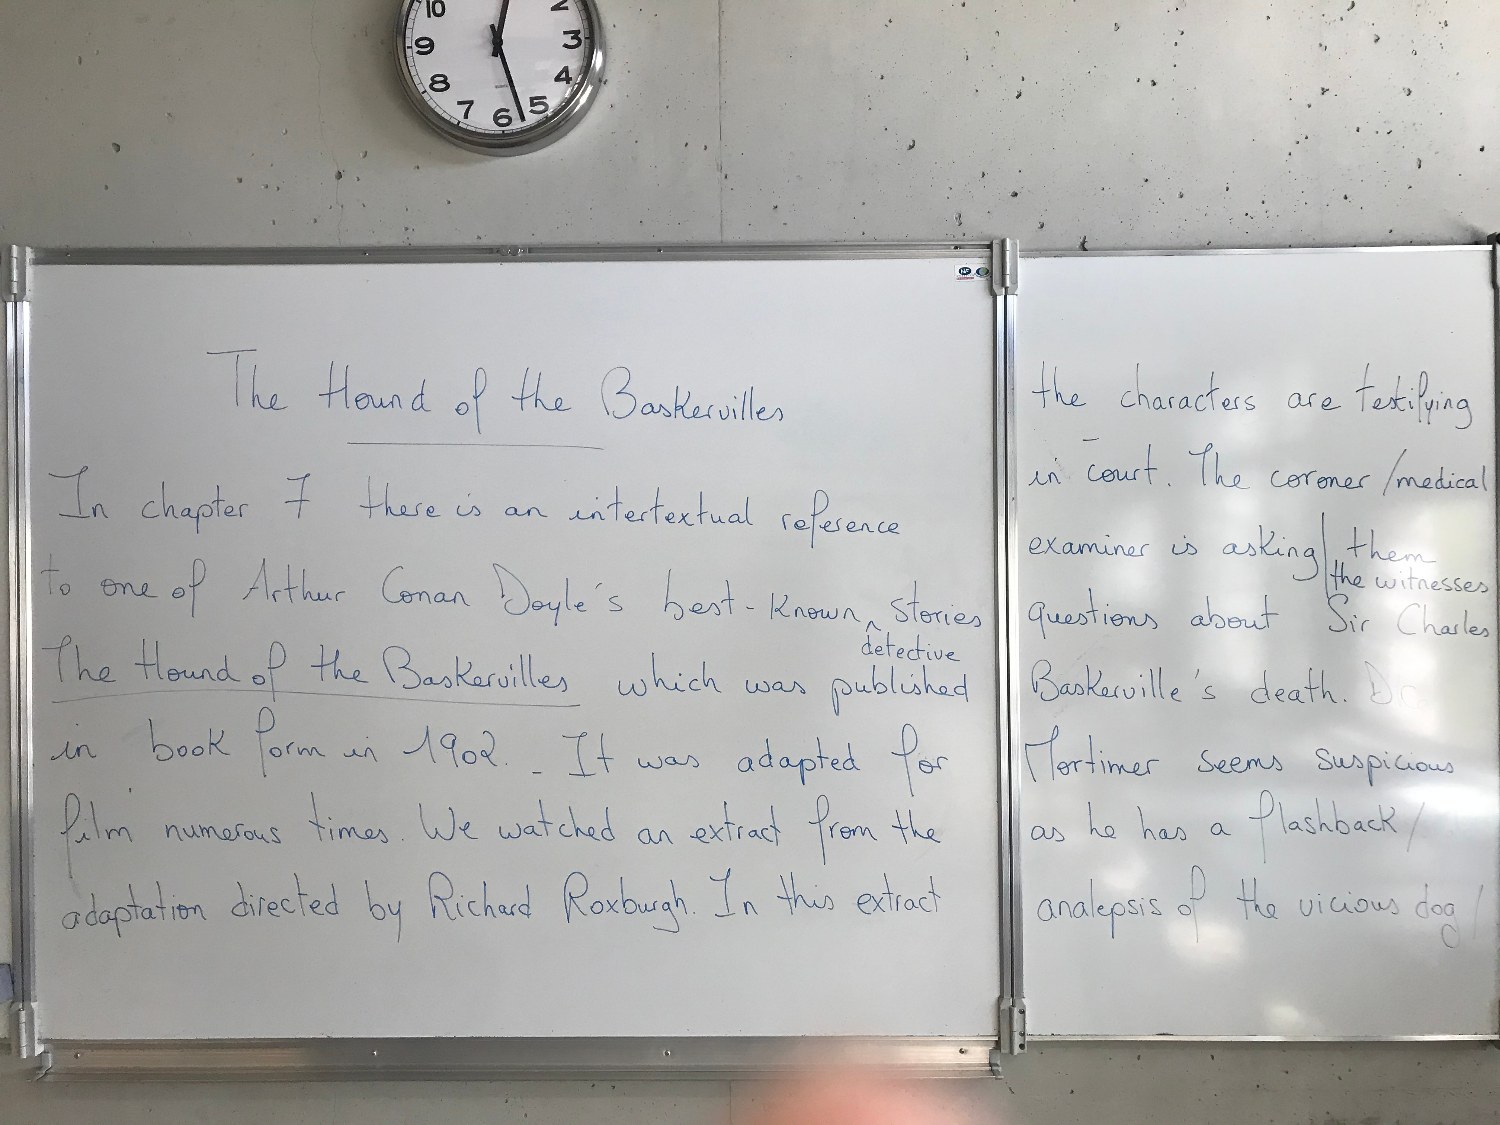 10
2
9
3
8
4
7
6
5
NF
The Hound of the Baskervilles
In chapter 7 there is an intertextual reference
to one of Arthur Conan Doyle's best-known ^ stories
detective
The Hound of the Baskervilles which was published
in book form in 1902. _ It was adapted for
film numerous times. We watched an extract from the
adaptation directed by Richard Roxburgh. In this extract
the characters are testifying
in court. The coroner / medical
examiner is asking | them
the witnesses
questions about Sir Charles
Baskerville's death. Dr
Mortimer seems suspicious
as he has a flashback /
analepsis of the vicious dog /